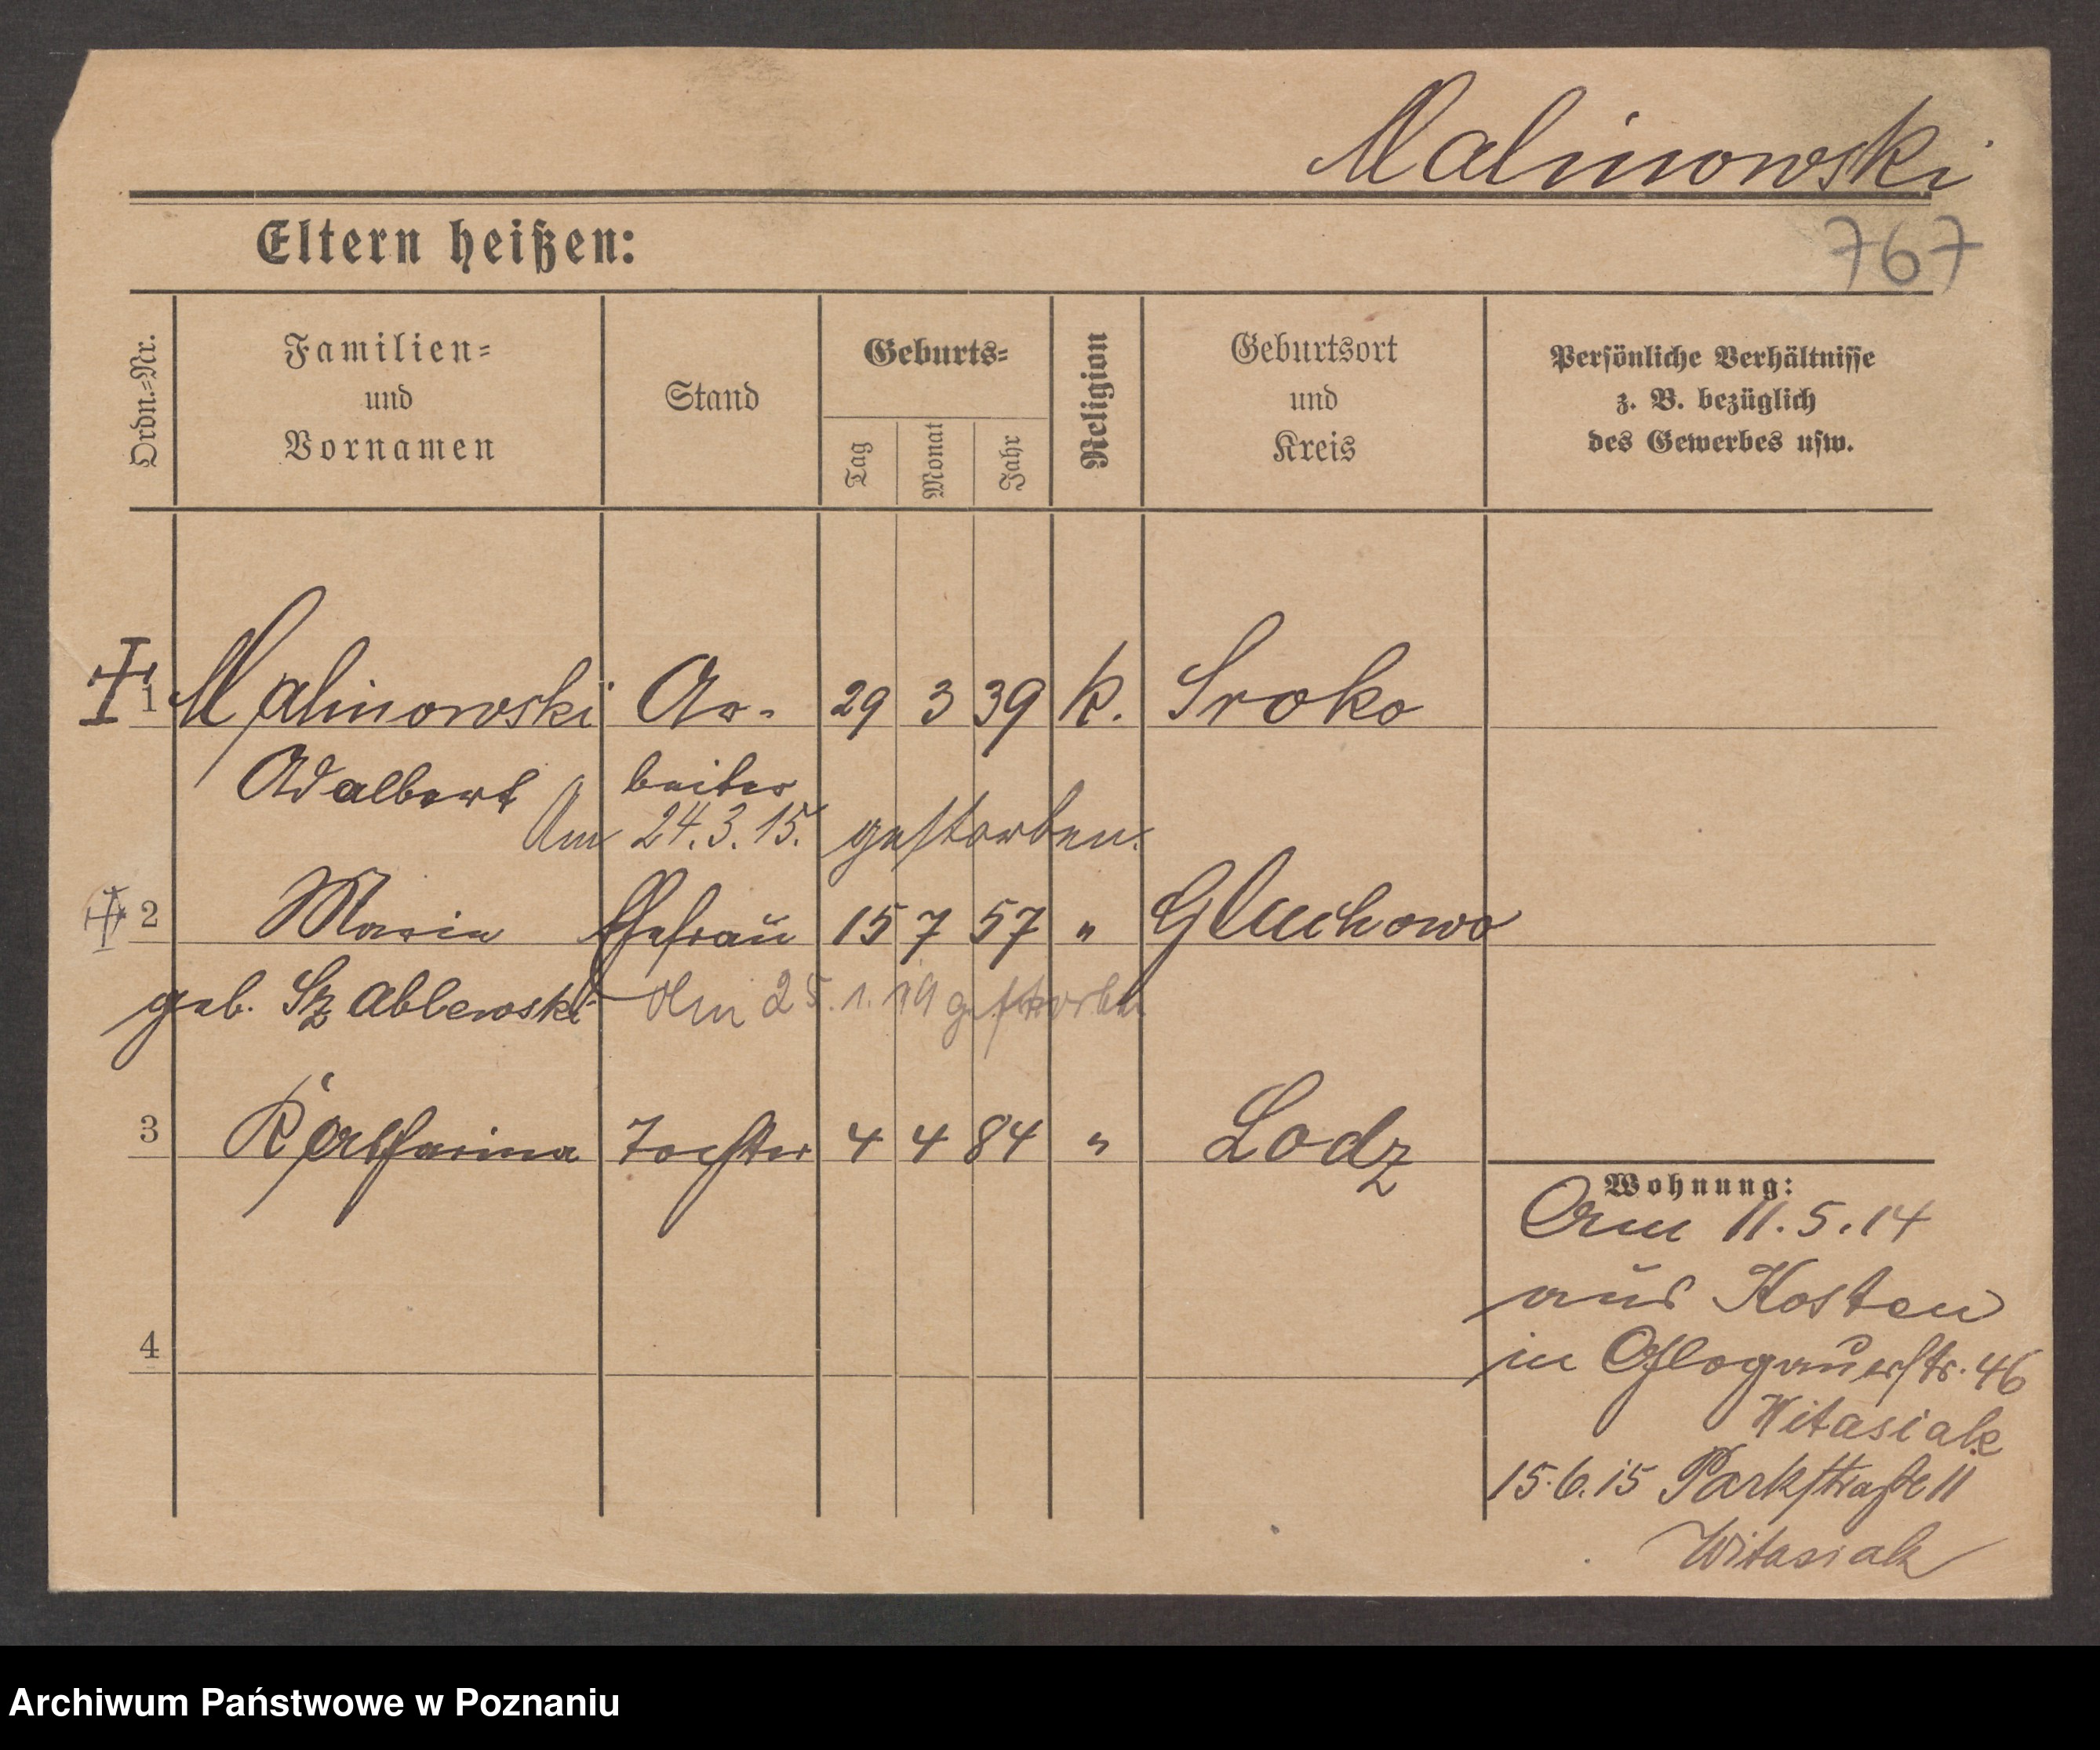 Malinowski
Eltern heißen:
767
Ordn.-Nr.
Familien-
und
Vornamen
Stand
Geburts-
Tag
Monat
Jahr
Religion
Geburtsort
und
Kreis
Persönliche Verhältnisse
z. B. bezüglich
des Gewerbes usw.
1 Malinowski Ar- 29 3 39 k. Sroko
Adalbert beiter
Am 24.3.15. gestorben.
2 Maria Ehefrau 15 7 57 " Gluchowo
geb. Szablewski Am 25.1.19 gestorben
3 Katharina Tochter 4 4 84 " Lodz
Wohnung:
Am 11.5.14
aus Kosten
4
in Glogauerstr. 46
Witasiak
15.6.15 Parkstraße 11
Witasiak
Archiwum Państwowe w Poznaniu